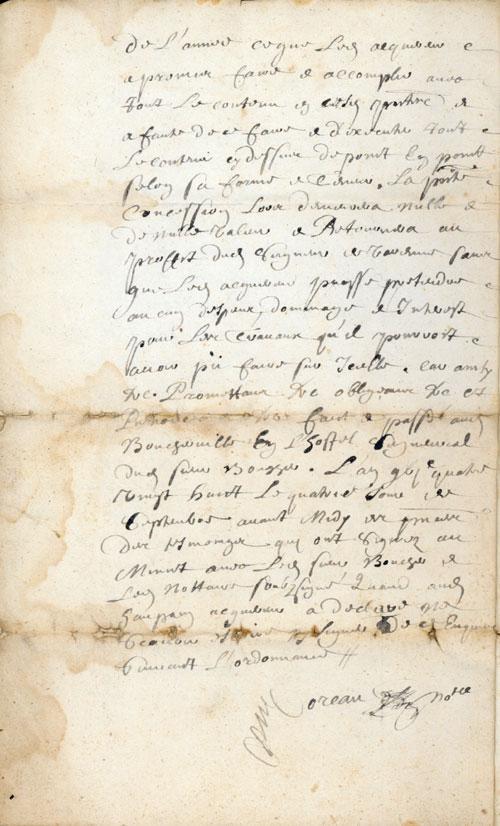 de L'année ce que Led. acquereur
a promis faire & accomplir avec
tout Le contenu
a faute de ce faire & d'executer tout
Le contenu cy dessus de point En point
selon sa forme & teneur. La pnte
Concession Leur demeurera Nulle &
de nulle valeur & Retournera au
proffit dud. Seigneur sans
que Led. acquereur puisse pretendre
aucun despens, dommage & Interest
pour Les travaux qu'il pourroit
avoir pû faire sur Icelle. Car ainsy
&c. Promettant &c obligeant &c
fait & passé aud.
Boucherville En L'hostel Seigneurial
dud. sieur Boucher. L'an gbjc quatre
vingt huict Le quatrie Jour de
Septembre avant Midy en presence
des tesmoings qui ont Signez au
Minut avec Led. sieur Boucher &
Led. Nottaire soubsigné Quand aud.
acquereur a Declaré Ne
Scavoir Escrire Ny Signer De ce Enquis
Suivant L'ordonnance //
Moreau Notre